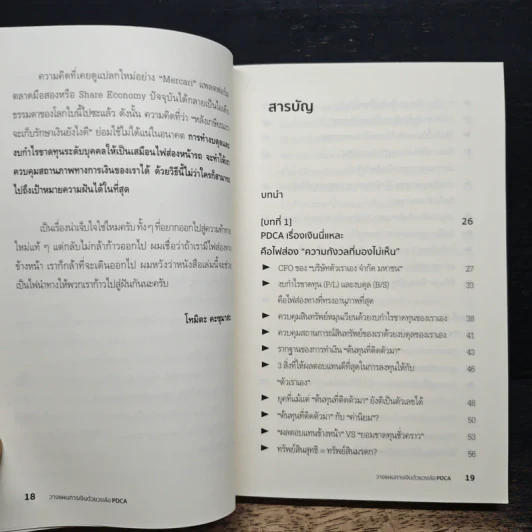 ความคิดที่เคยดูแปลกใหม่อย่าง "Mercari"
ตลาดมือสองหรือ Share Economy ปัจจุบันได้กลายเป็น
ธรรมดาของโลกใบนี้ไปซะแล้ว ดังนั้น ความคิดที่ว่า
จะเก็บรักษาเงินยังไงดี" ย่อมใช้ไม่ได้แน่ในอนาคต การทำงบดุลและ
งบกำไรขาดทุนระดับบุคคลให้เป็นเสมือนไฟส่องหน้ารถ จะทำให้เรา
ควบคุมสถานภาพทางการเงินของเราได้ ด้วยวิธีนี้ไม่ว่าใครก็สามารถ
ไปถึงเป้าหมายความฝันได้ในที่สุด
เป็นเรื่องน่าเจ็บใจใช่ไหมครับ ทั้งๆ ที่อยากออกไปสู่ความท้าทาย
ใหม่แท้ๆ แต่กลับไม่กล้าก้าวออกไป ผมเชื่อว่าถ้าเรามีไฟส่อง
ข้างหน้า เราก็กล้าที่จะเดินออกไป ผมหวังว่าหนังสือเล่มนี้จะช่วย
เป็นไฟนำทางให้พวกเราก้าวไปสู่ฝันกันนะครับ
โทมิตะ คะซุมาซะ
18
วางแผนการเงินด้วยวงล้อ PDCA
สารบัญ
บทนำ
[บทที่ 1] 26
PDCA เรื่องเงินนี่แหละ
คือไฟส่อง "ความกังวลที่มองไม่เห็น"
► CFO ของ "บริษัทตัวเราเอง จำกัด มหาชน" 27
► งบกำไรขาดทุน (P/L) และงบดุล (B/S) 33
คือไฟส่องทางที่ทรงอานุภาพที่สุด
► ควบคุมสินทรัพย์หมุนเวียนด้วยงบกำไรขาดทุนของเราเอง 38
► ควบคุมสถานการณ์สินทรัพย์ของเราด้วยงบดุลของเราเอง 41
► รากฐานของการทำเงิน "ต้นทุนที่ติดตัวมา" 43
► 3 สิ่งที่ให้ผลตอบแทนดีที่สุดในการลงทุนให้กับ 46
"ตัวเราเอง"
► ยุคที่แม้แต่ "ต้นทุนที่ติดตัวมา" ยังตีเป็นตัวเลขได้ 48
► "ต้นทุนที่ติดตัวมา" กับ "ค่านิยม"? 50
► "ผลตอบแทนข้างหน้า" VS "ยอมขาดทุนชั่วคราว" 53
► ทรัพย์สินสุทธิ = ทรัพย์สินมรดก? 56
วางแผนการเงินด้วยวงล้อ PDCA
19